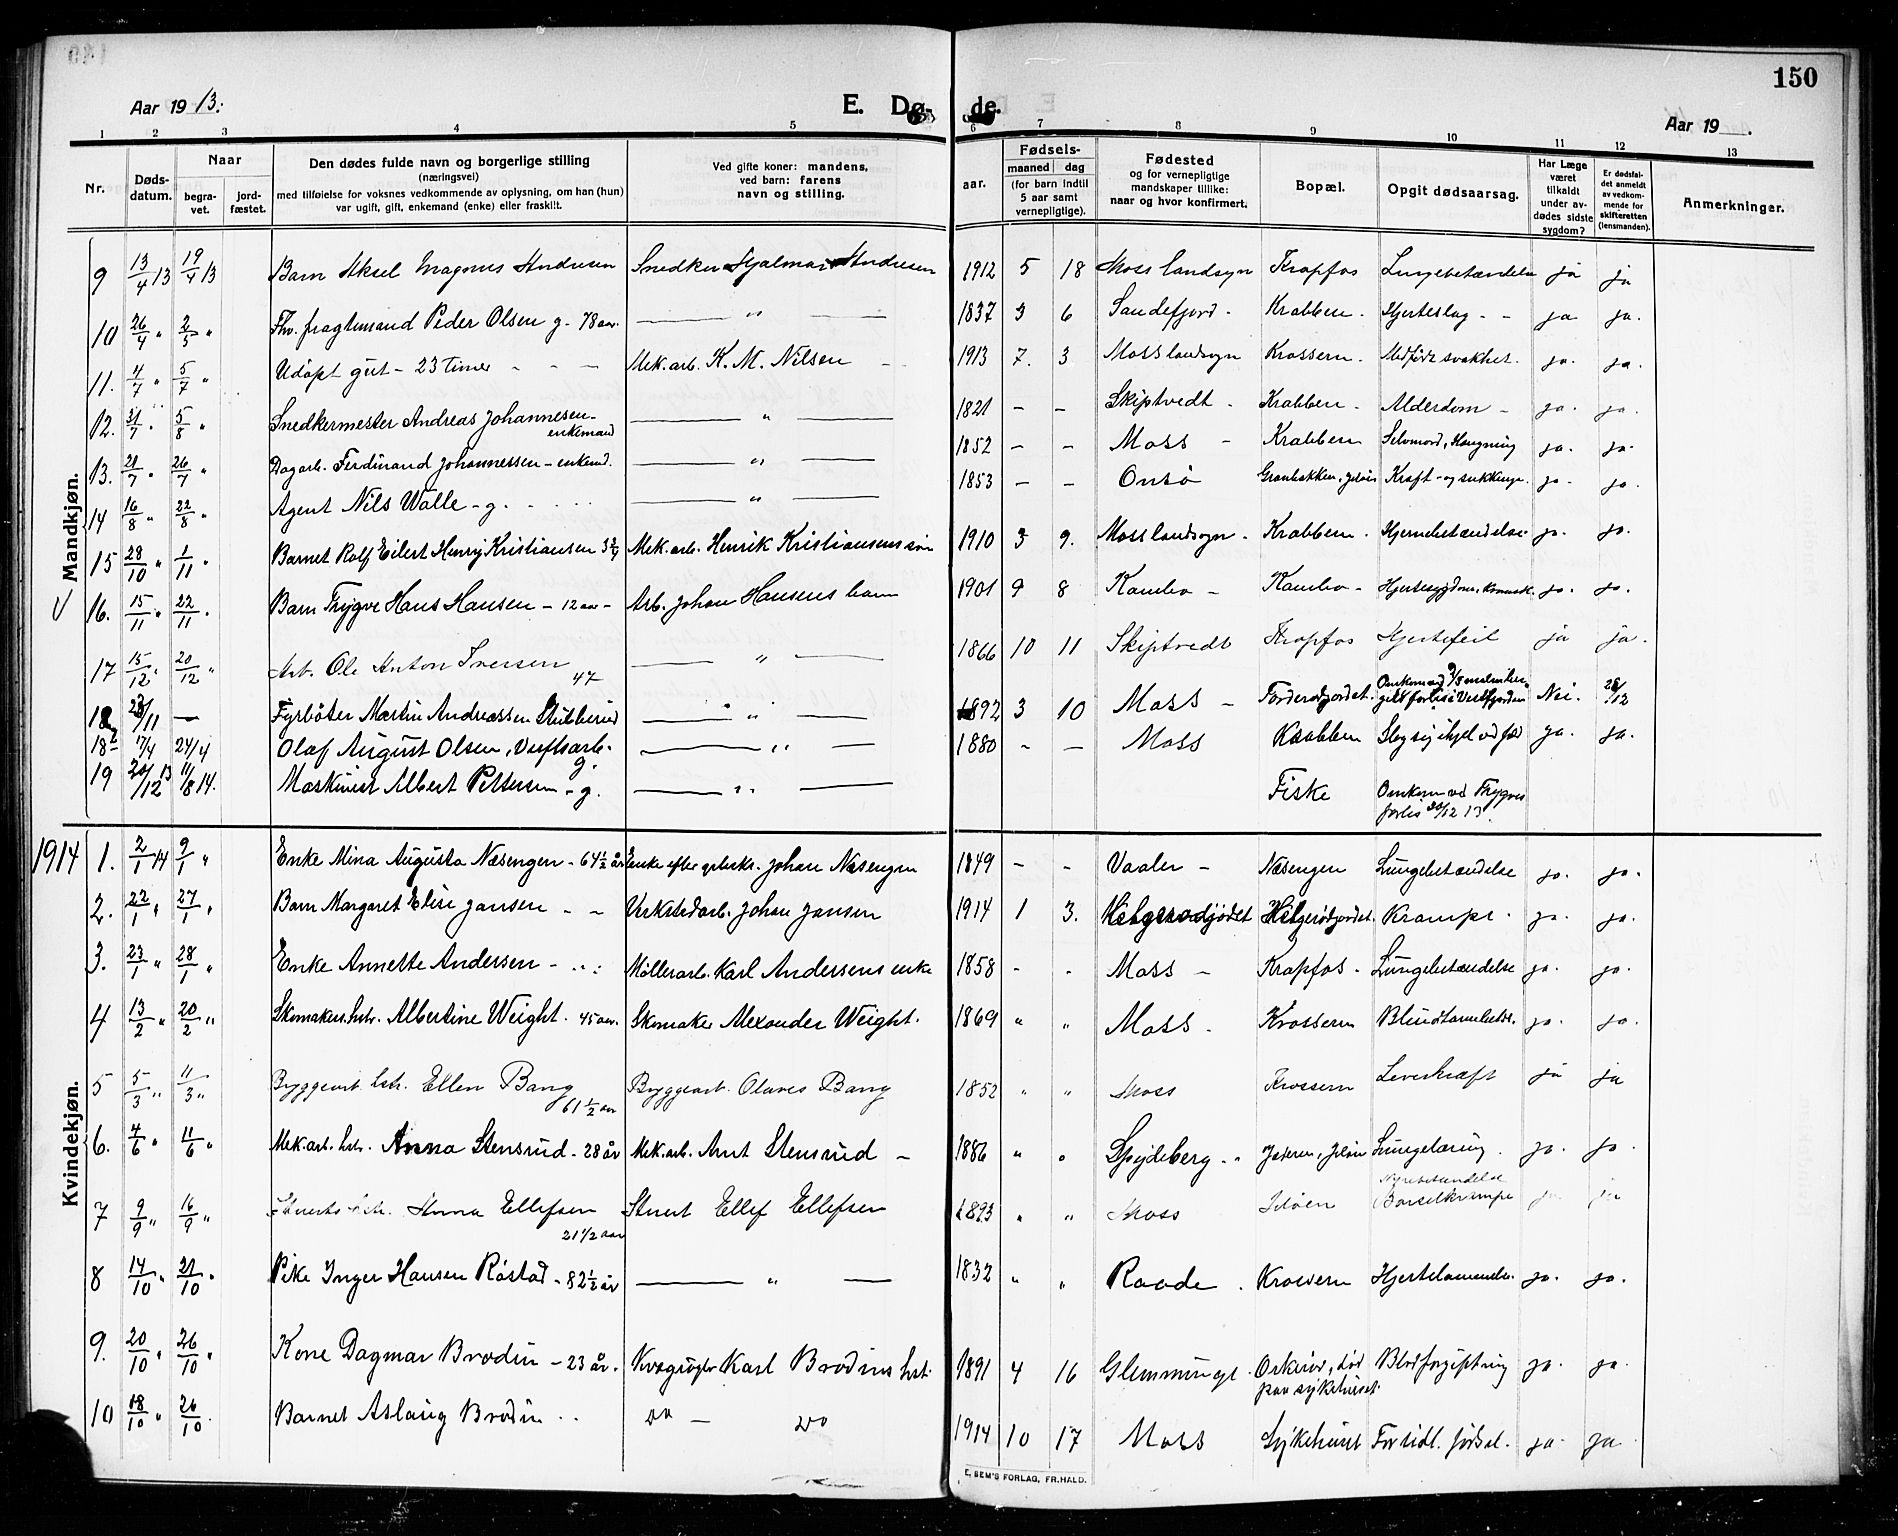 150
Aar 1913.
E. Dø-
de.
Aar 19
1 2 3 4 5 6 7 8 9 10 11 12 13
Nr.
Døds-
datum.
Naar
begra-
vet.
jord-
fæstet.
Den dødes fulde navn og borgerlige stilling
(næringsvei)
med tilføielse for voksnes vedkommende av oplysning, om han (hun)
var ugift, gift, enkemand (enke) eller fraskilt.
Ved gifte koner: mandens,
ved barn: farens
navn og stilling.
aar.
Fødsels-
maaned dag
(for barn indtil
5 aar samt
vernepligtige).
Fødested
og for vernepligtige
mandskaper tillike:
naar og hvor konfirmert.
Bopæl.
Opgit dødsaarsag.
Har Læge
været
tilkaldt
under av-
dødes sidste
sygdom?
Er dødsfal-
det anmeldt
av vedkom-
mende for
skifteretten
(lensmanden).
Anmerkninger.
Mandkjøn.
9 13/4 13 19/4 13 Barn Aksel Magnus Andresen Snedker Hjalmar Andresen 1912 5 18 Moss landsogn Krapfos Lungebetændelse ja ja
10 26/4 " 2/5 " Fhv. fragtemand Peder Olsen g. 78 aar. — " — 1837 3 6 Sandefjord - Krabben - Hjerteslag - - ja ja.
11. 4/7 " 5/7 " Udøpt gut - 23 timer - - - Mek. arb. K. M. Nilsen - 1913 7. 3 Moss landsogn Krossern. Medfødt svakhet. ja. ja.
12. 31/7 " 5/8 " Snedkermester Andreas Johannesen -
enkemand — " — 1821 - - Skiptvedt - Krabben - Alderdom - ja. ja.
13. 21/7 " 26/7 " Dagarb. Ferdinand Johannessen - enkemd. — " — 1852 - - Moss - Krabben Selvmord, Hængning ja. ja.
14 16/8 " 22/8 " Agent Nils Walle - g. — " — 1853 - - Onsø Kræft - ja. ja.
15 28/10 " 1/11 " Barnet Rolf Eilert Henry Kristiansen Mek. arb. Henrik Kristiansens søn 1910 3 9. Moss landsogn - Krabben - Hjernebetændelse ja. ja.
V 16. 15/11 " 22/11 " Barn Trygve Hans Hansen - 12 aar - Arb. Johan Hansens barn 1901 9 8 Kambo - Kambo - ja. ja.
17 15/12 " 20/12 " Arb. Ole Anton Iversen
47 — " — 1866 10 11 Skiptvedt Krapfos Hjertefeil ja ja.
18 28/11 — Fyrbøter Martin Andreassen Stibberud — " — 1892 3 10 Moss - Nei. 28/12
18 17/4 24/4 Olaf August Olsen, Verftsarb.
g. — " — 1880 - - Moss Krabben Slog sig ihjel ved fald ja. ja.
19 20/12 13 11/8 14. Maskinist Albert Pettersen - g. — " — Fiske Omkom ved Trygves
forlis 20/12 13.
Kvindekjøn.
1914 1. 2/1 14 9/1 " Enke Mina Augusta Næsengen - 64 1/2 år Enke efter Johan Næsengen 1849 - - Vaaler - Næsengen Lungebetændelse ja. ja.
2. 22/1 " 27/1 " Barn Margaret Elise Jansen - - Verkstedarb. Johan Jansen 1914 1 3. Helgerødjødet Helgerødjordet. Krampe. ja. ja.
3. 23/1 " 28/1 " Enke Annette Andersen - Møllerarb. Karl Andersens enke 1858 - - Moss - Krapfos - Lungebetændelse ja. ja.
4 13/2 " 20/2 " Skomakers hstr. Albertine Weight. 45 aar. Skomaker Alexander Weight. 1869 " " Moss - Krossern ja. ja.
5 5/3 " 11/3 " Byggearb. hstr. Ellen Bang
61 1/2 aar Byggearb. Olaves Bang 1852 " " Moss Krossern Leverkræft ja ja
6. 4/6 " 11/6 " Mek. arb. hstr. Anna Stensrud - 28 år Mek. arb. Arnt Stensrud - 1886 " " Spydeberg - Lungetæring. ja. ja.
7 9/9 " 16/9 " Stuerts hstr. Anna Ellefsen
21 1/2 aar Stuert Ellef Ellefsen 1893 " " Moss Jeløen Nyrebetændelse
Barselkrampe ja ja
8 14/10 " 21/10 " Pike Inger Hansen Råstad - 82 1/2 år — " — 1832 " " Raade. Krossern Hjertelammelse. ja. ja.
9. 20/10 " 26/10 " Kone Dagmar Brodin - 23 år. Karl Brodins hst. 1891 4 16 Glemminge. død
paa sykehuset. Blodforgiftning ja. ja.
10 18/10 " 26/10 Barnet Aslaug Brodin.. do — do 1914 10 17 Moss Sykehuset For tidl. fødsel. ja. ja.
E. SEM'S FORLAG, FR.HALD.